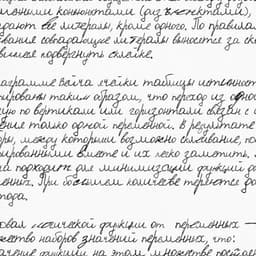 венными конъюнктами (дизъюнктами),
дают все литералы, кроме одного. По правила
вания совпадающие литералы выносятся за ско
вшиеся подвергнуть склейке.
аграмме Вейча ячейки таблицы истинност
ированы таким образом, что переход из одной
ую по вертикали или горизонтали связан с и
ения только одной переменной. В результате
оры, между которыми возможно склеивание, по
ированными вместе и их легко заметить.
а подходит для минимизации функций до
менных. При большем количестве теряется до
тода.
ловал логической функции от переменных —
жество наборов значений переменных, что:
начение функции на этом множестве постоян